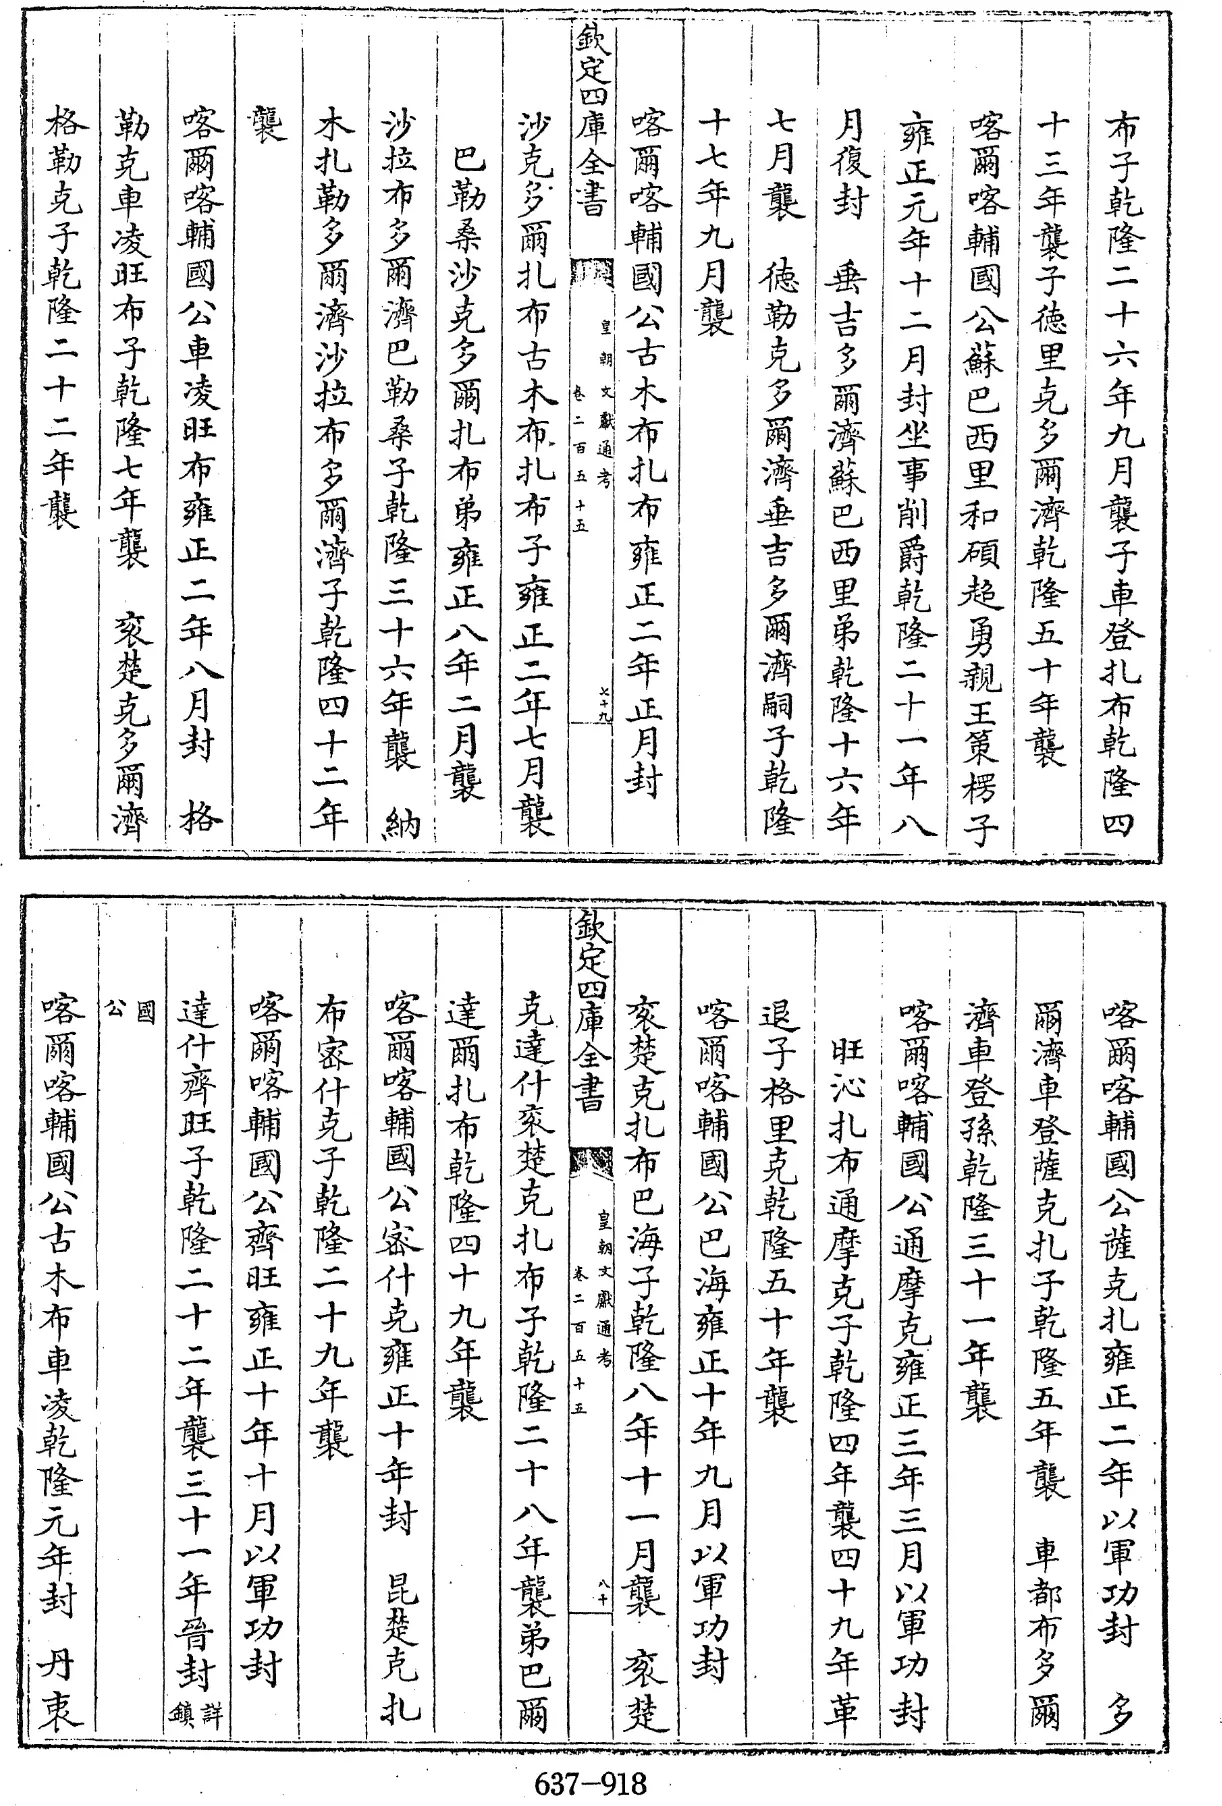 布子乾隆二十六年九月襲子車登扎布乾隆四
十三年襲子德里克多爾濟乾隆五十年襲
喀爾喀輔國公蘇巴西里和碩超勇親王策楞子
雍正元年十二月封坐事削爵乾隆二十一年八
月復封　垂吉多爾濟蘇巴西里弟乾隆十六年
七月襲　德勒克多爾濟垂吉多爾濟嗣子乾隆
十七年九月襲
喀爾喀輔國公古木布扎布雍正二年正月封
欽定四庫全書
皇朝文獻通考
卷二百五十五
七十九
沙克多爾扎布古木布扎布子雍正二年七月襲
巴勒桑沙克多爾扎布弟雍正八年二月襲
沙拉布多爾濟巴勒桑子乾隆三十六年襲　納
木扎勒多爾濟沙拉布多爾濟子乾隆四十二年
襲
喀爾喀輔國公車凌旺布雍正二年八月封　格
勒克車凌旺布子乾隆七年襲　衮楚克多爾濟
格勒克子乾隆二十二年襲
喀爾喀輔國公薩克扎雍正二年以軍功封　多
爾濟車登薩克扎子乾隆五年襲　車都布多爾
濟車登孫乾隆三十一年襲
喀爾喀輔國公通摩克雍正三年三月以軍功封
旺沁扎布通摩克子乾隆四年襲四十九年革
退子格里克乾隆五十年襲
喀爾喀輔國公巴海雍正十年九月以軍功封
衮楚克扎布巴海子乾隆八年十一月襲　衮楚
欽定四庫全書
皇朝文獻通考
卷二百五十五
八十
克達什衮楚克扎布子乾隆二十八年襲弟巴爾
達爾扎布乾隆四十九年襲
喀爾喀輔國公密什克雍正十年封　昆楚克扎
布密什克子乾隆二十九年襲
喀爾喀輔國公齊旺雍正十年十月以軍功封
達什齊旺子乾隆二十二年襲三十一年晉封詳鎮
國公
喀爾喀輔國公古木布車凌乾隆元年封　丹衷
637-918